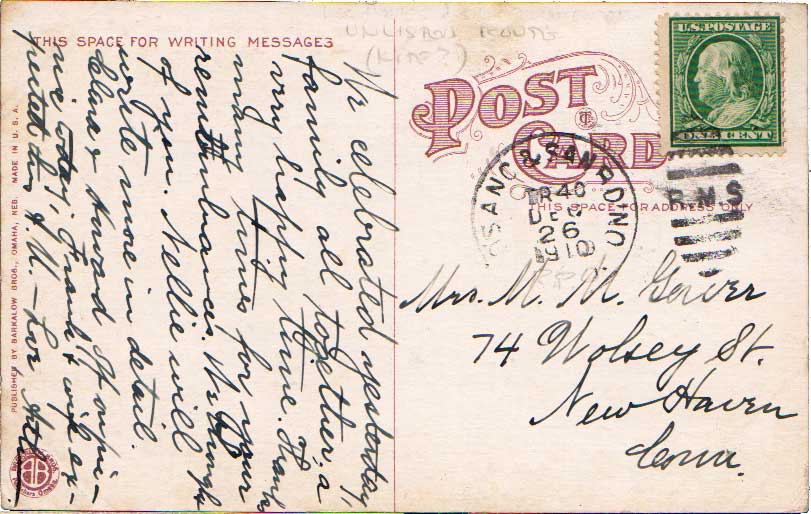 THIS SPACE FOR WRITING MESSAGES
We celebrated yesterday,
family all together, a
very happy time. Thanks
many times for your
remembrances. We thought
of you. Nellie will
write more in detail.
& Howard
today, Frank & wife ex-
pected
PUBLISHED BY BARKALOW BROS., OMAHA, NEB. MADE IN U. S. A.
UNLISTED ROUTE
POST
CARD
THIS SPACE FOR ADDRESS ONLY
U.S. POSTAGE
ONE CENT
TR 40
DEC
26
1910
R.M.S
Mrs. M. M. Gower
74 Wolsey St.
New Haven
Conn.